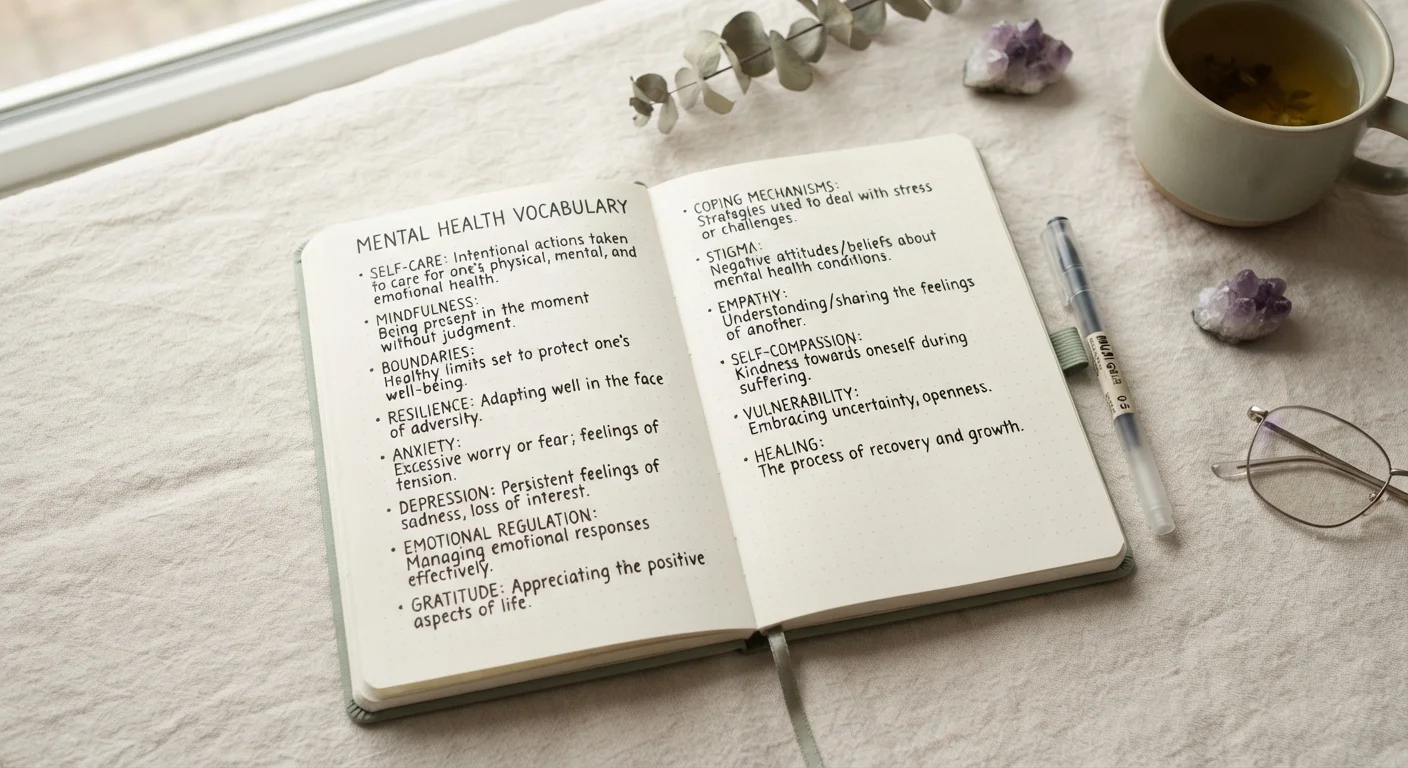 MENTAL HEALTH VOCABULARY
• SELF-CARE: Intentional actions taken
to care for one's physical, mental, and
emotional health.
• MINDFULNESS:
Being present in the moment
without judgment.
• BOUNDARIES:
Healthy limits set to protect one's
well-being.
• RESILIENCE: Adapting well in the face
of adversity.
• ANXIETY:
Excessive worry or fear; feelings of
tension.
• DEPRESSION: Persistent feelings of
sadness, loss of interest.
• EMOTIONAL REGULATION:
Managing emotional responses
effectively.
• GRATITUDE: Appreciating the positive
aspects of life.
• COPING MECHANISMS:
Strategies used to deal with stress
or challenges.
• STIGMA:
Negative attitudes/beliefs about
mental health conditions.
• EMPATHY:
Understanding/sharing the feelings
of another.
• SELF-COMPASSION:
Kindness towards oneself during
suffering.
• VULNERABILITY:
Embracing uncertainty, openness.
• HEALING:
The process of recovery and growth.